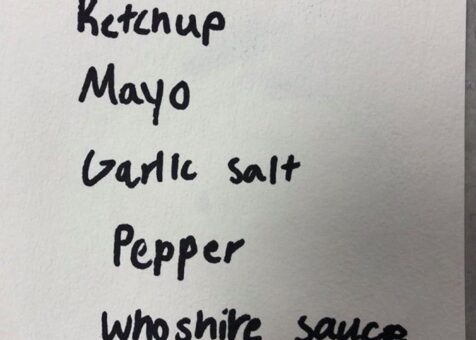 Ketchup
Mayo
Garlic salt
Pepper
Whoshire sauce